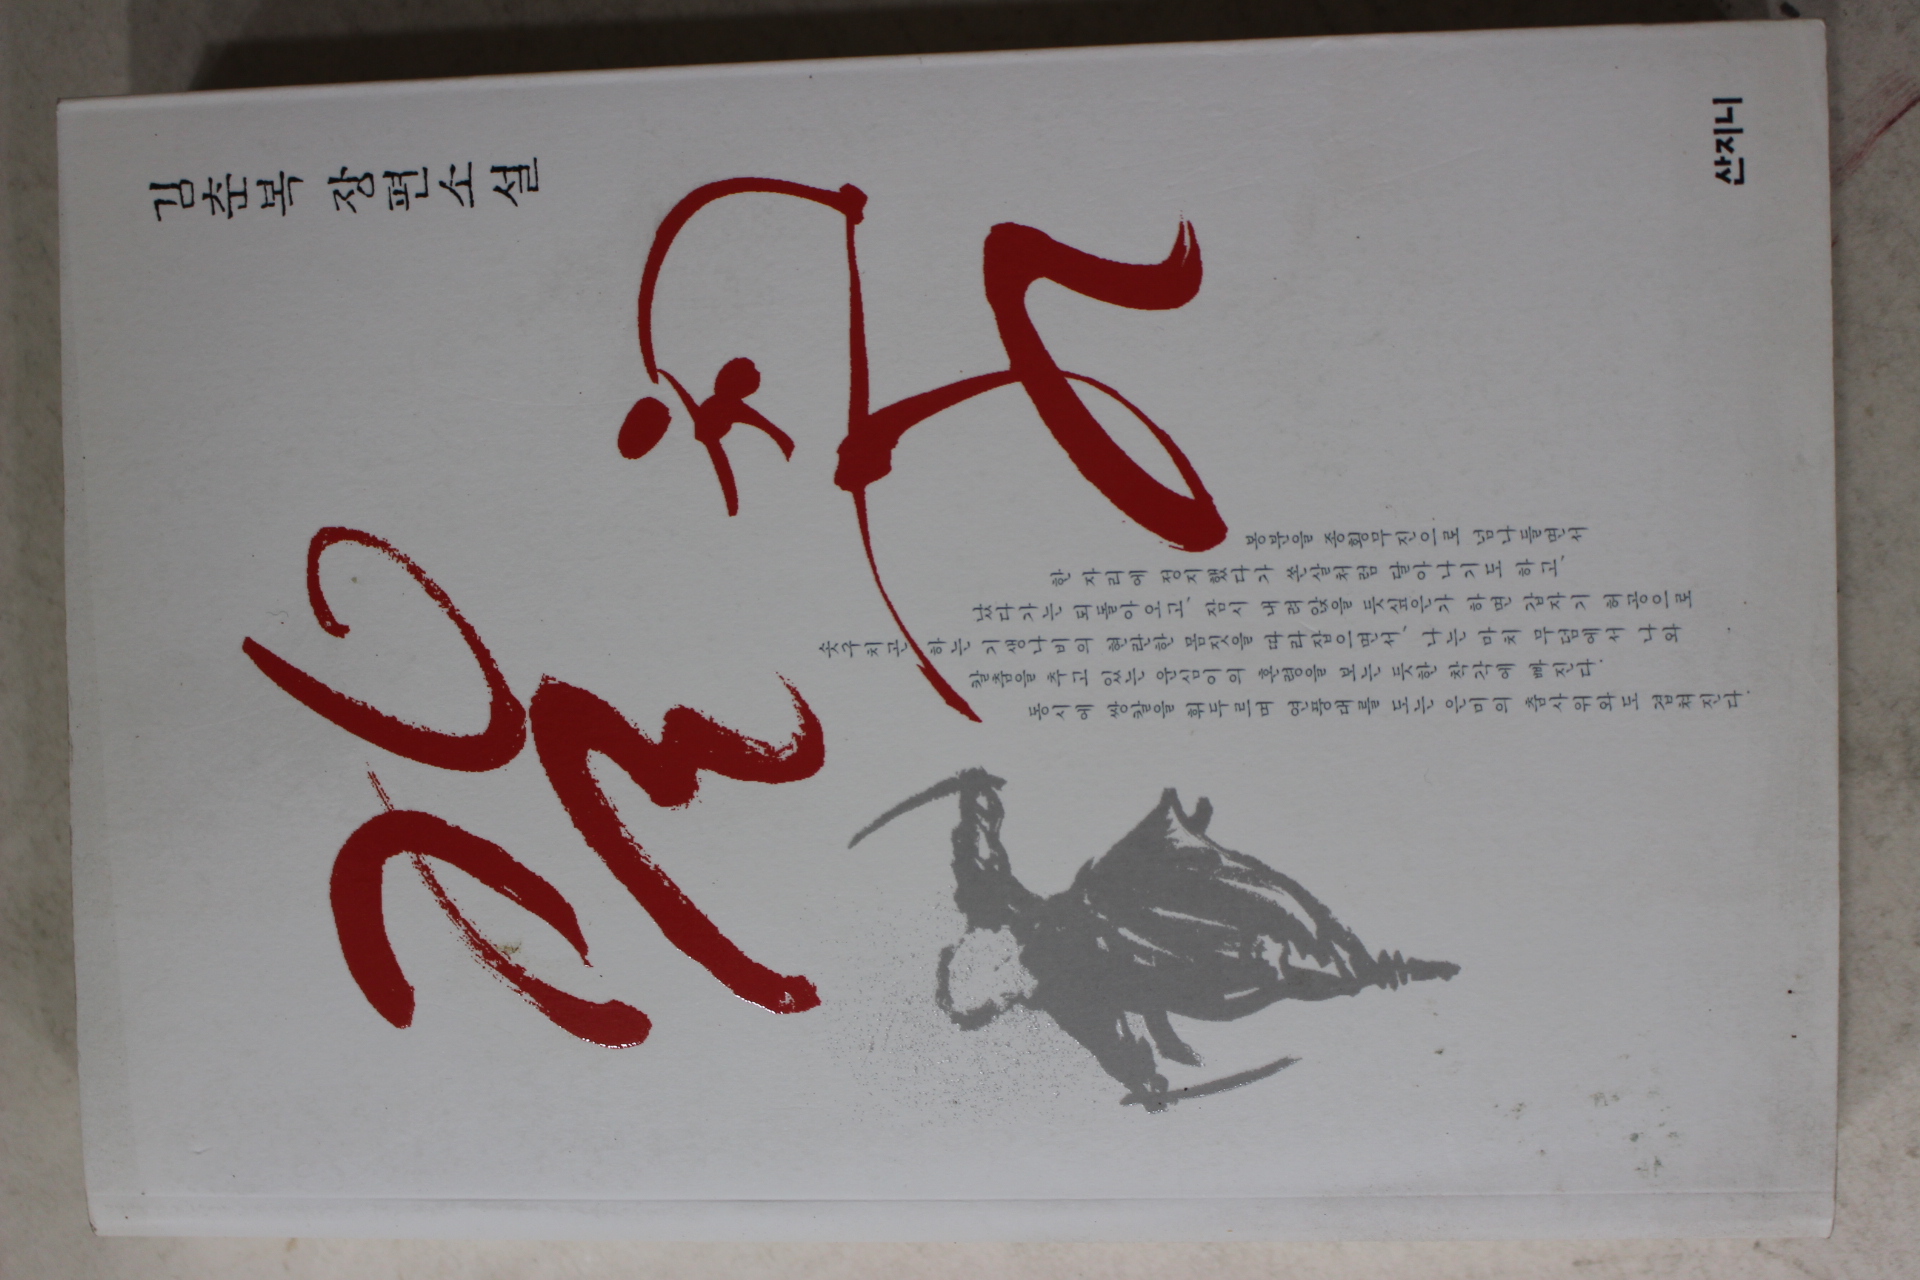 김춘복 장편소설
칼춤
봉분을 종횡무진으로 넘나들면서
한 자리에 정지했다가 쏜살처럼 달아나기도 하고,
났다가는 되돌아오고, 잠시 내려앉을 듯싶은가 하면 갑자기 허공으로
솟구치곤 하는 기생나비의 현란한 몸짓을 따라잡으면서, 나는 마치 무덤에서 나와
칼춤을 추고 있는 운심이의 혼령을 보는 듯한 착각에 빠진다.
동시에 쌍칼을 휘두르며 연풍대를 도는 은미의 춤사위와도 겹쳐진다.
산지니